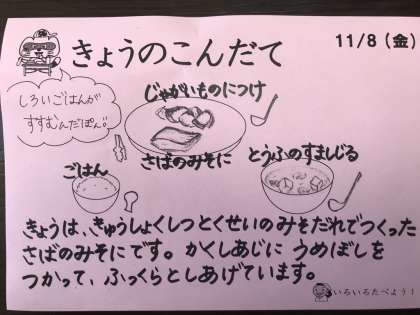 きょうのこんだて
11/8(金)
しろいごはんが
すすむんだぽん。
じゃがいものにつけ
さばのみそに
とうふのすましじる
ごはん
きょうは、きゅうしょくしつとくせいのみそだれでつくった
さばのみそにです。かくしあじに うめぼしを
つかって、ふっくらとしあげています。
いろいろたべよう！